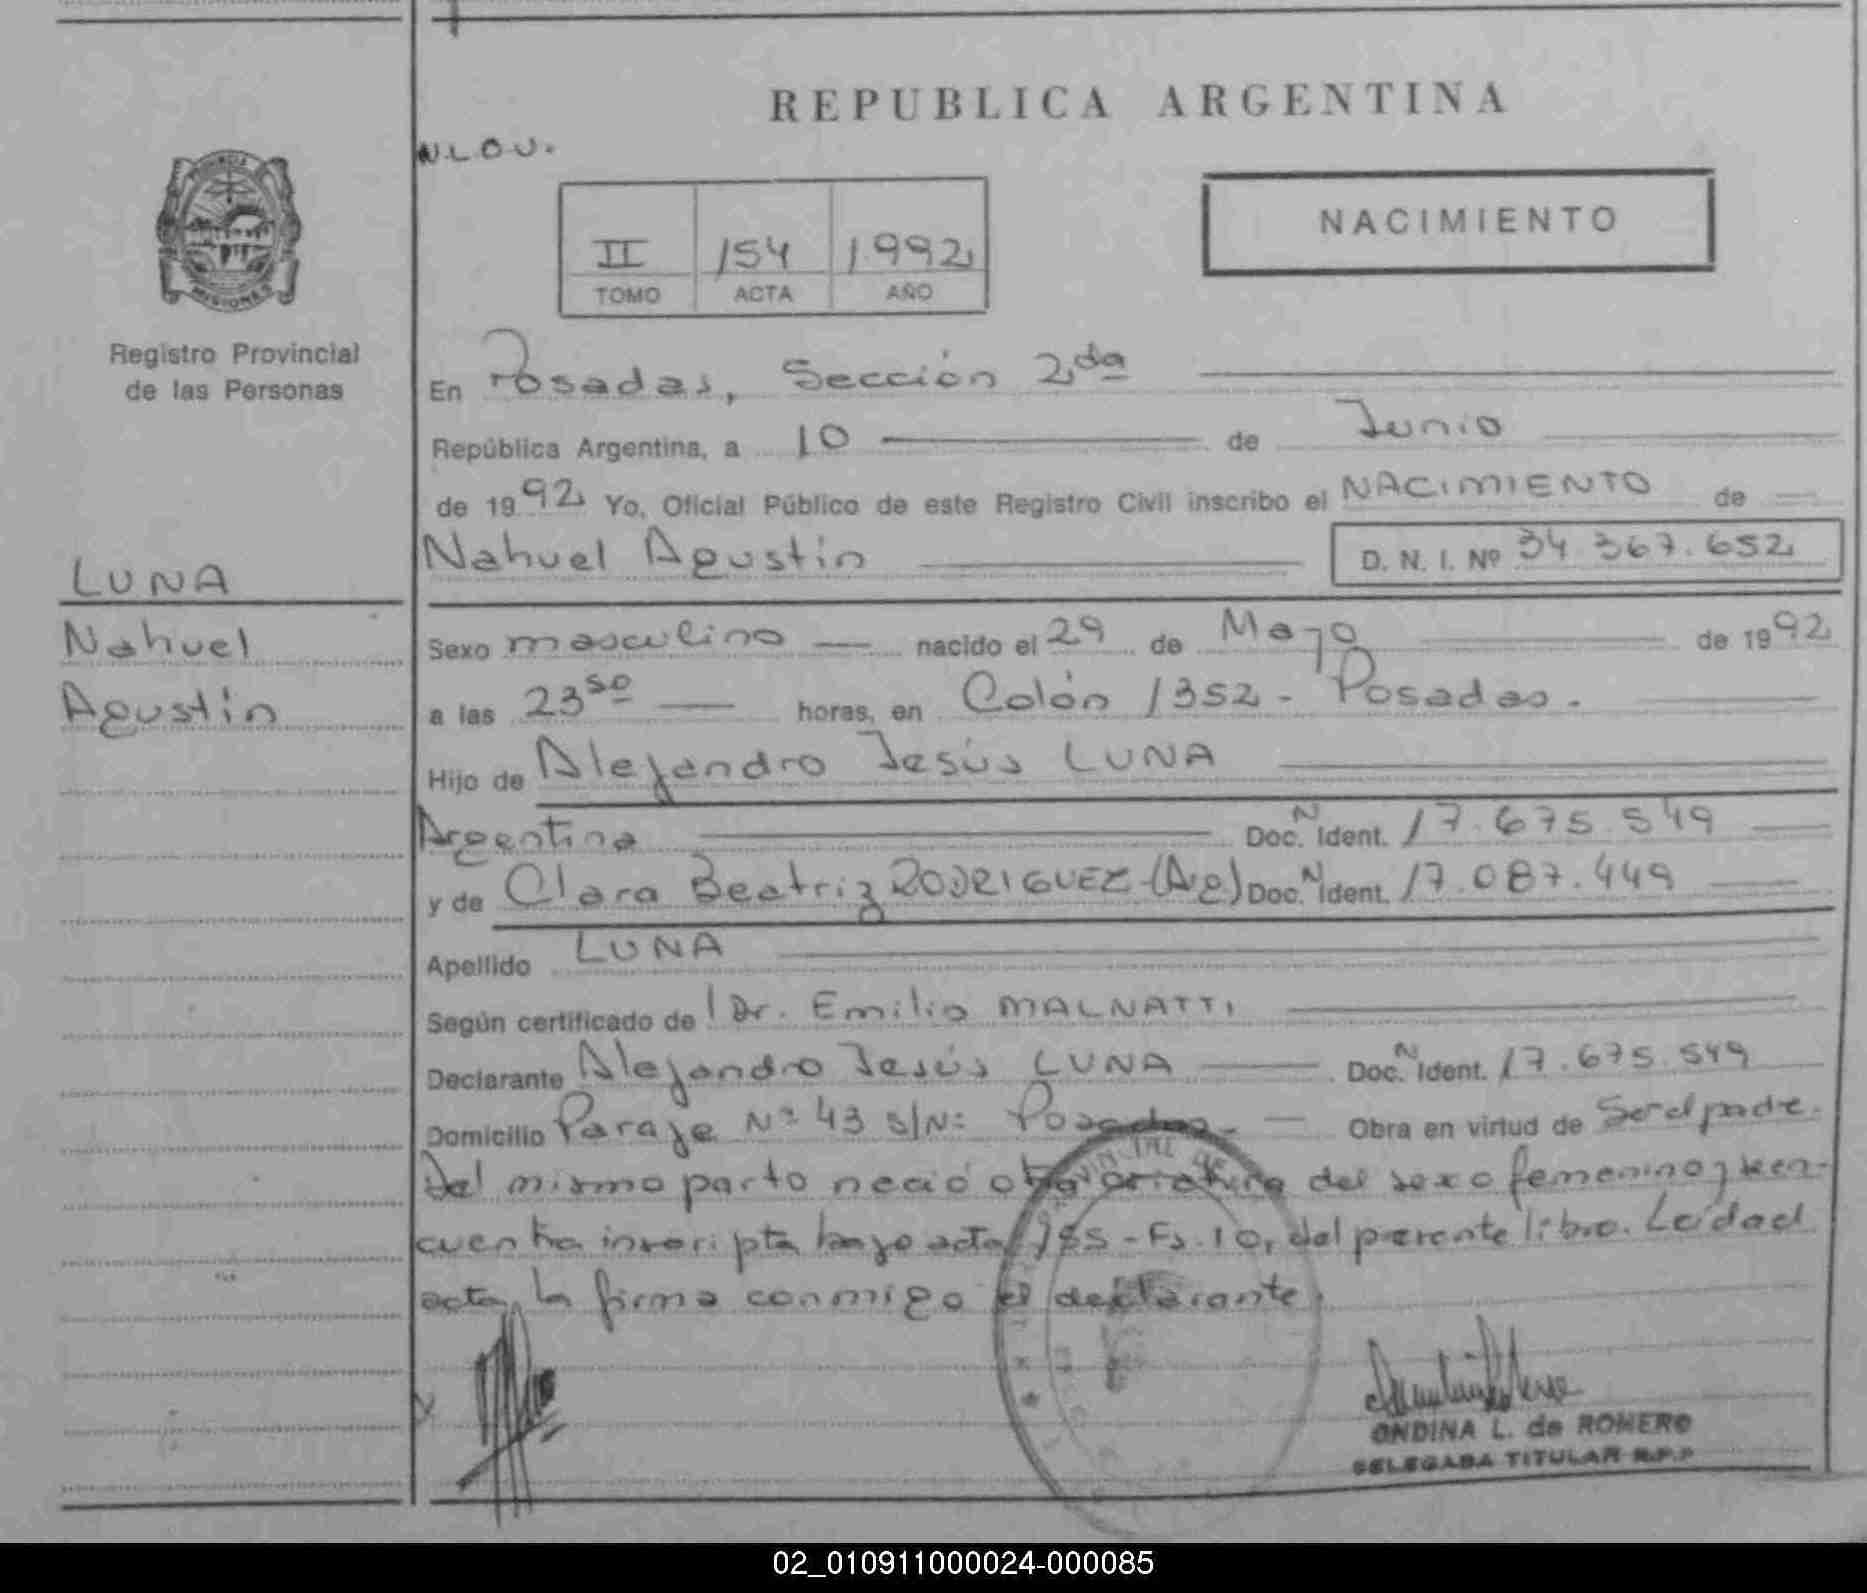 REPUBLICA ARGENTINA
N.L.O.U.
NACIMIENTO
II 154 1.992
TOMO ACTA AÑO
MISIONES
Registro Provincial
de las Personas
LUNA
Nahuel
Agustín
En Posadas, Sección 2da
República Argentina, a 10 de Junio
de 1992 Yo, Oficial Público de este Registro Civil inscribo el NACIMIENTO de
Nahuel Agustín D. N. I. Nº 34.367.652
Sexo masculino nacido el 29 de Mayo de 1992
a las 23 50 horas, en Colón 1352 - Posadas.
Hijo de Alejandro Jesús LUNA
Argentina Doc. N Ident. 17.675.549
y de Clara Beatriz RODRIGUEZ (Arg) Doc. N Ident. 17.087.449
Apellido LUNA
Según certificado de Dr. Emilio MALNATTI
Declarante Alejandro Jesús LUNA Doc. N Ident. 17.675.549
Domicilio Paraje Nº 43 s/Nº Posadas. Obra en virtud de Ser el padre.
Del mismo parto nació otra criatura del sexo femenino y se en-
cuentra inscripta bajo acta 155 - Fs. 10, del presente libro. Leída el
acta, la firma conmigo el declarante.
ONDINA L. de ROMERO
DELEGADA TITULAR R.P.P
02_010911000024-000085